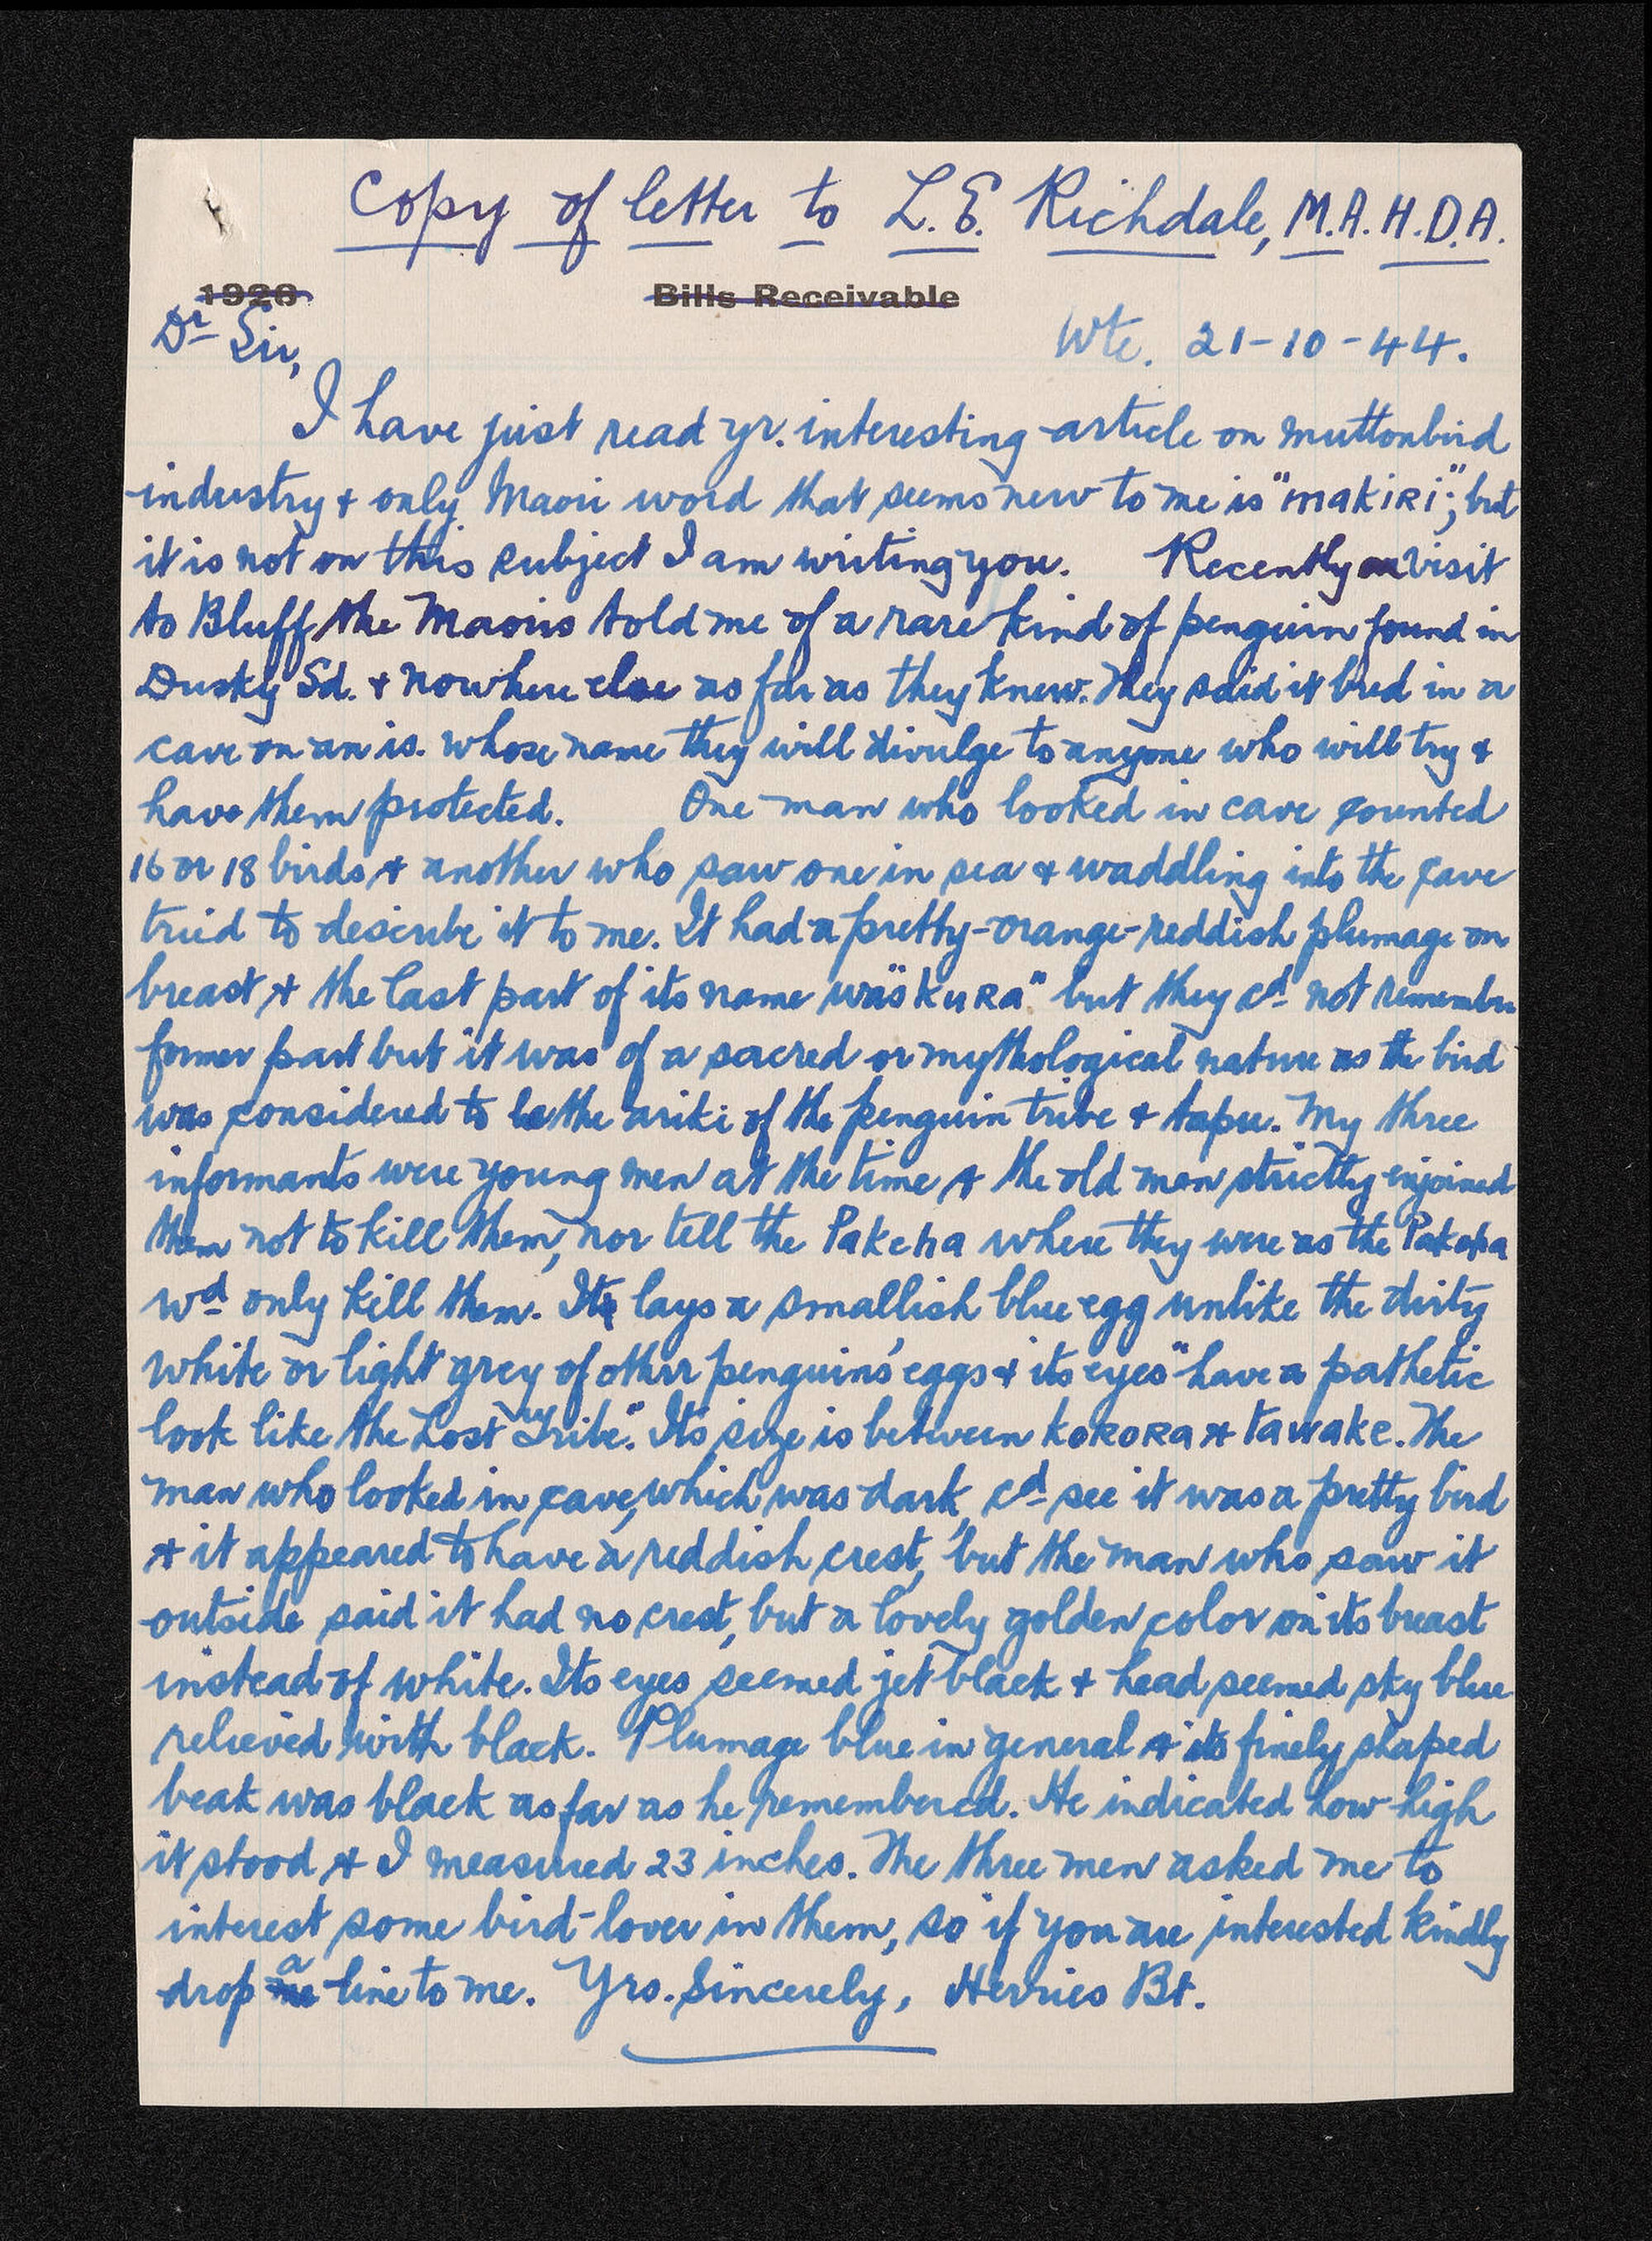 Copy of letter to L. E. Richdale, M.A. H.D.A.
1920 Bills Receivable
Dr Sir, Wte. 21-10-44.
I have just read yr. interesting article on muttonbird
industry & only Maori word that seems new to me is "makiri"; but
it is not on this subject I am writing you. Recently on visit
to Bluff the Maoris told me of a rare kind of penguin found in
Dusky Sd. & nowhere else as far as they knew. They said it bred in a
cave on an is. whose name they will divulge to anyone who will try &
have them protected. One man who looked in cave counted
16 or 18 birds & another who saw one in sea & waddling into the cave
tried to describe it to me. It had a pretty-orange-reddish plumage on
breast & the last part of its name was "kura" but they cd not remember
former part but it was of a sacred or mythological nature as the bird
was considered to be the ariki of the penguin tribe & tapu. My three
informants were young men at the time & the old men strictly enjoined
them not to kill them, nor tell the Pakeha where they were as the Pakeha
wd only kill them. It lays a smallish blue egg unlike the dirty
white or light grey of other penguins' eggs & its eyes "have a pathetic
look like the Lost Tribe". Its size is between korora & tawake. The
man who looked in cave, which was dark, cd see it was a pretty bird
& it appeared to have a reddish crest, but the man who saw it
outside said it had no crest, but a lovely golden color on its breast
instead of white. Its eyes seemed jet black & head seemed sky blue
relieved with black. Plumage blue in general & its finely shaped
beak was black as far as he remembered. He indicated how high
it stood & I measured 23 inches. The three men asked me to
interest some bird-lover in them, so if you are interested kindly
drop a line to me. Yrs. Sincerely, Herries Bt.